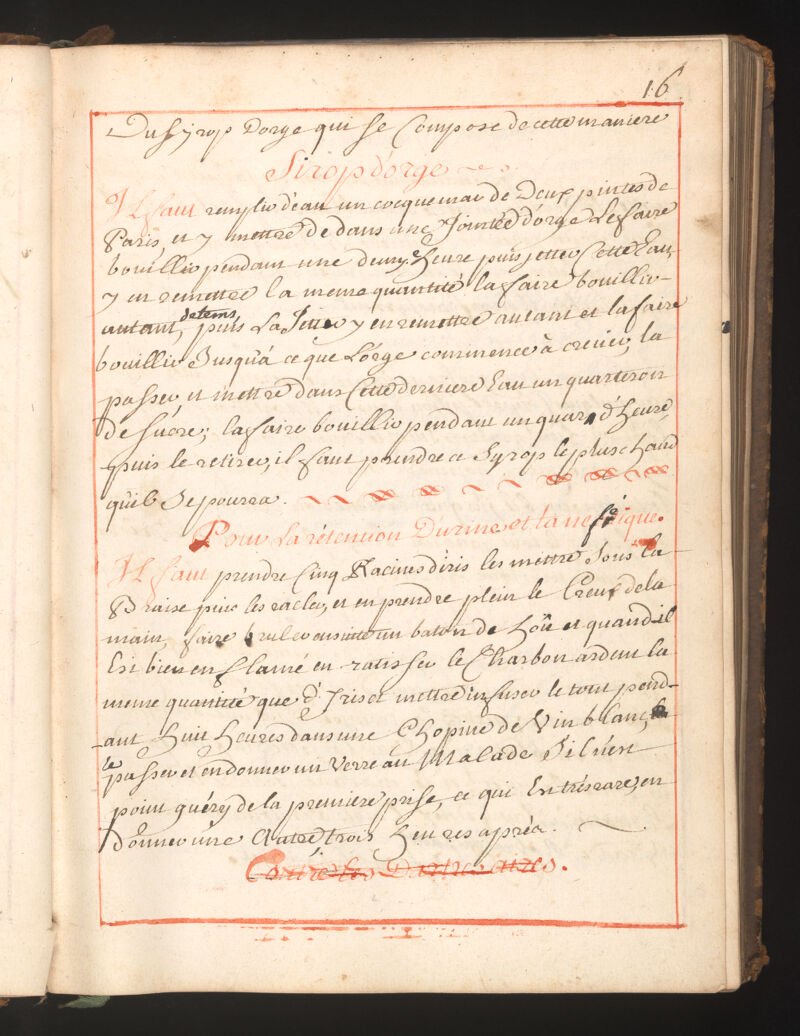 16
Du Syrop Dorge qui se Compose de cette maniere
Sirop d'orge
Il faut remplir d'eau un cocquemar de Deux pintes de
Paris, et y mettre de dans une Jointée d'orge Le faire
bouillir pendant une demy Heure puis jetter Cette Eau,
y en remettre la meme quantité la faire bouillir
autant de tems, puis La Jetter y en remettre autant et la faire
bouillir Jusqu'à ce que L'orge commence à crever, la
passer et mettre dans Cette derniere Eau un quarteron
de Sucre; la faire bouillir pendant un quart d'Heure,
puis le retirer, il faut prendre ce Syrop le plus chaud
qu'il Se pourra.
Pour La rétention Durine et la nefrétique.
Il faut prendre Cinq Racines d'iris les mettre Sous la
Braise puis les racler, et en prendre plein le Creux de la
main, faire bruler ensuitte un baton de Houx et quand il
Est bien en flamé en ratisser le Charbon ardent la
meme quantité que d'Iris et mettre infuser le tout pend-
-ant Huit Heures dans une Chopine de Vin blanc,
le passer et en donner un Verre au Malade S'il n'est
point guéry de la premiere prise, ce qui Est trés rare, en
donner une Autre trois Heures aprés.
Contre les Dartres